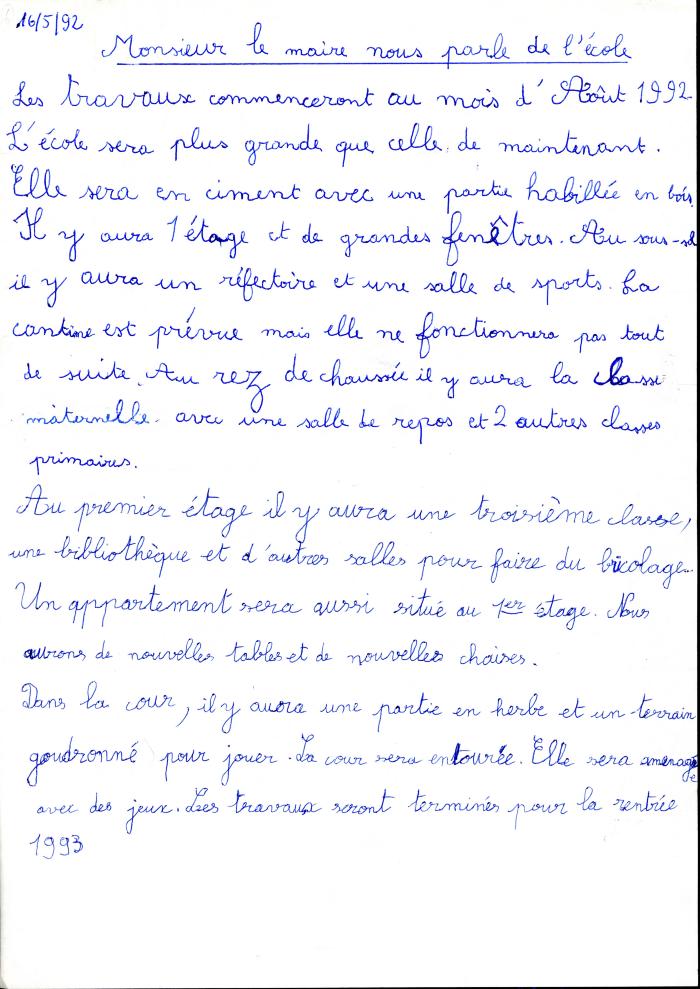 16/5/92
Monsieur le maire nous parle de l'école
Les travaux commenceront au mois d'Août 1992
L'école sera plus grande que celle de maintenant.
Elle sera en ciment avec une partie habillée en bois.
Il y aura 1 étage et de grandes fenêtres. Au sous-sol
il y aura un réfectoire et une salle de sports. La
cantine est prévue mais elle ne fonctionnera pas tout
de suite. Au rez de chaussée il y aura la classe
maternelle avec une salle de repos et 2 autres classes
primaires.
Au premier étage il y aura une troisième classe,
une bibliothèque et d'autres salles pour faire du bricolage.
Un appartement sera aussi situé au 1er étage. Nous
aurons de nouvelles tables et de nouvelles chaises.
Dans la cour, il y aura une partie en herbe et un terrain
goudronné pour jouer. La cour sera entourée. Elle sera aménagée
avec des jeux. Les travaux seront terminés pour la rentrée
1993